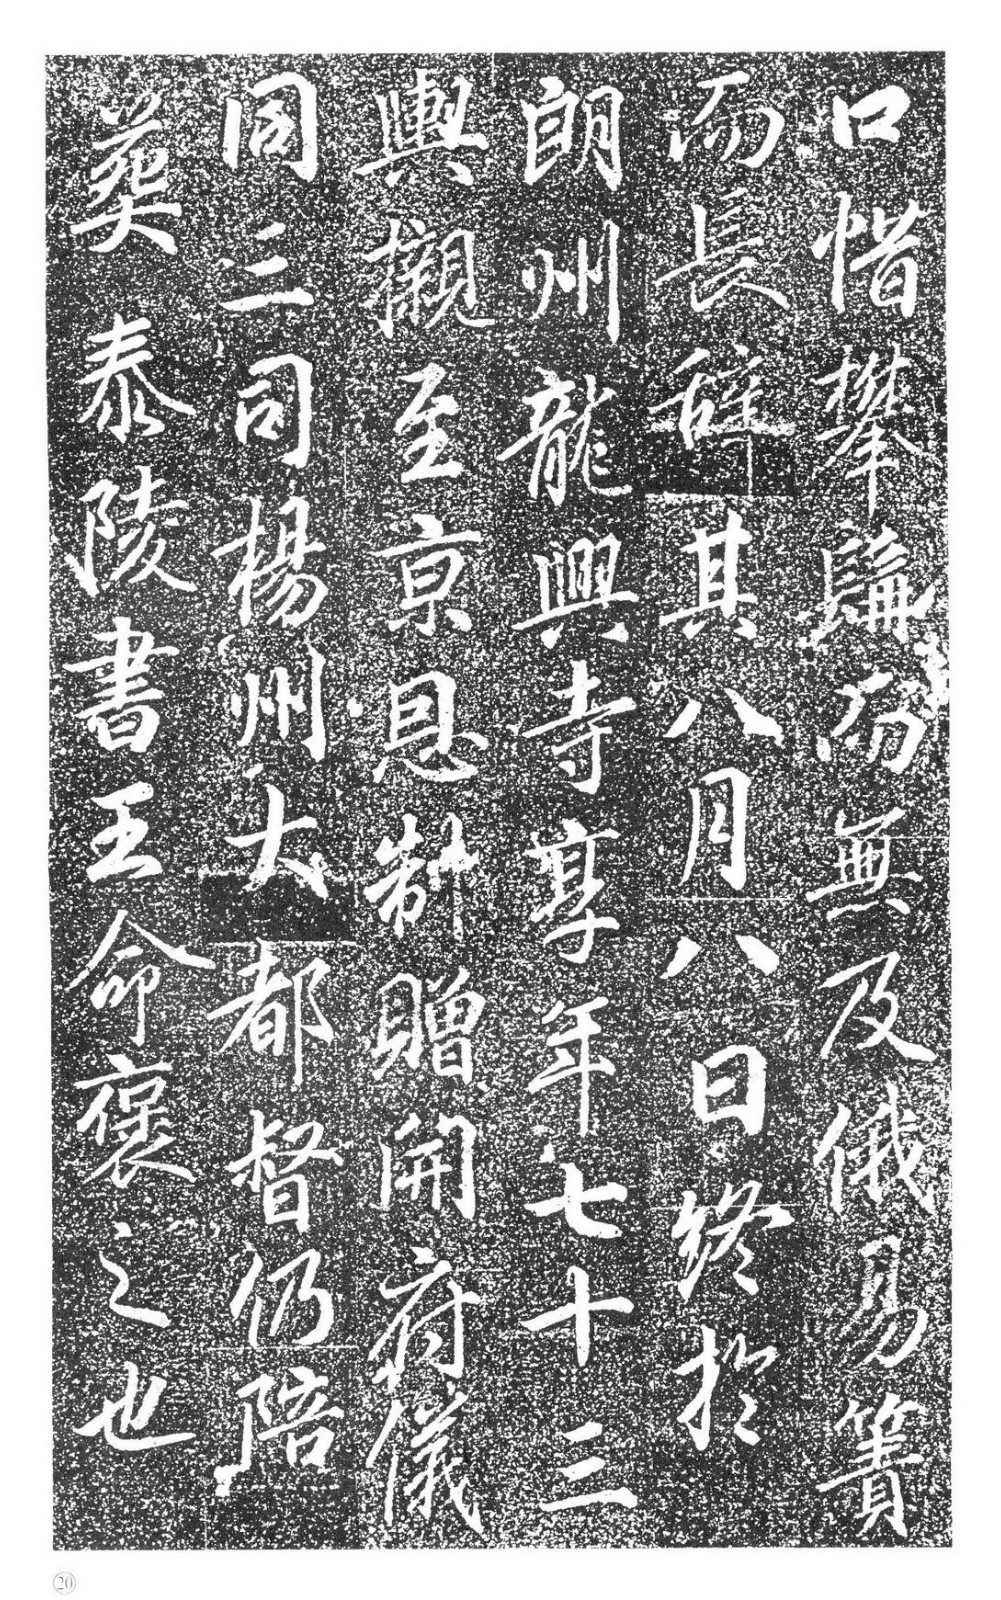 口惜攀髯而無及俄易簀
而長辭其八月八日終於
朗州龍興寺享年七十三
輿櫬至京恩制贈開府儀
同三司楊州大都督仍陪
葬泰陵書王命褒之也
20